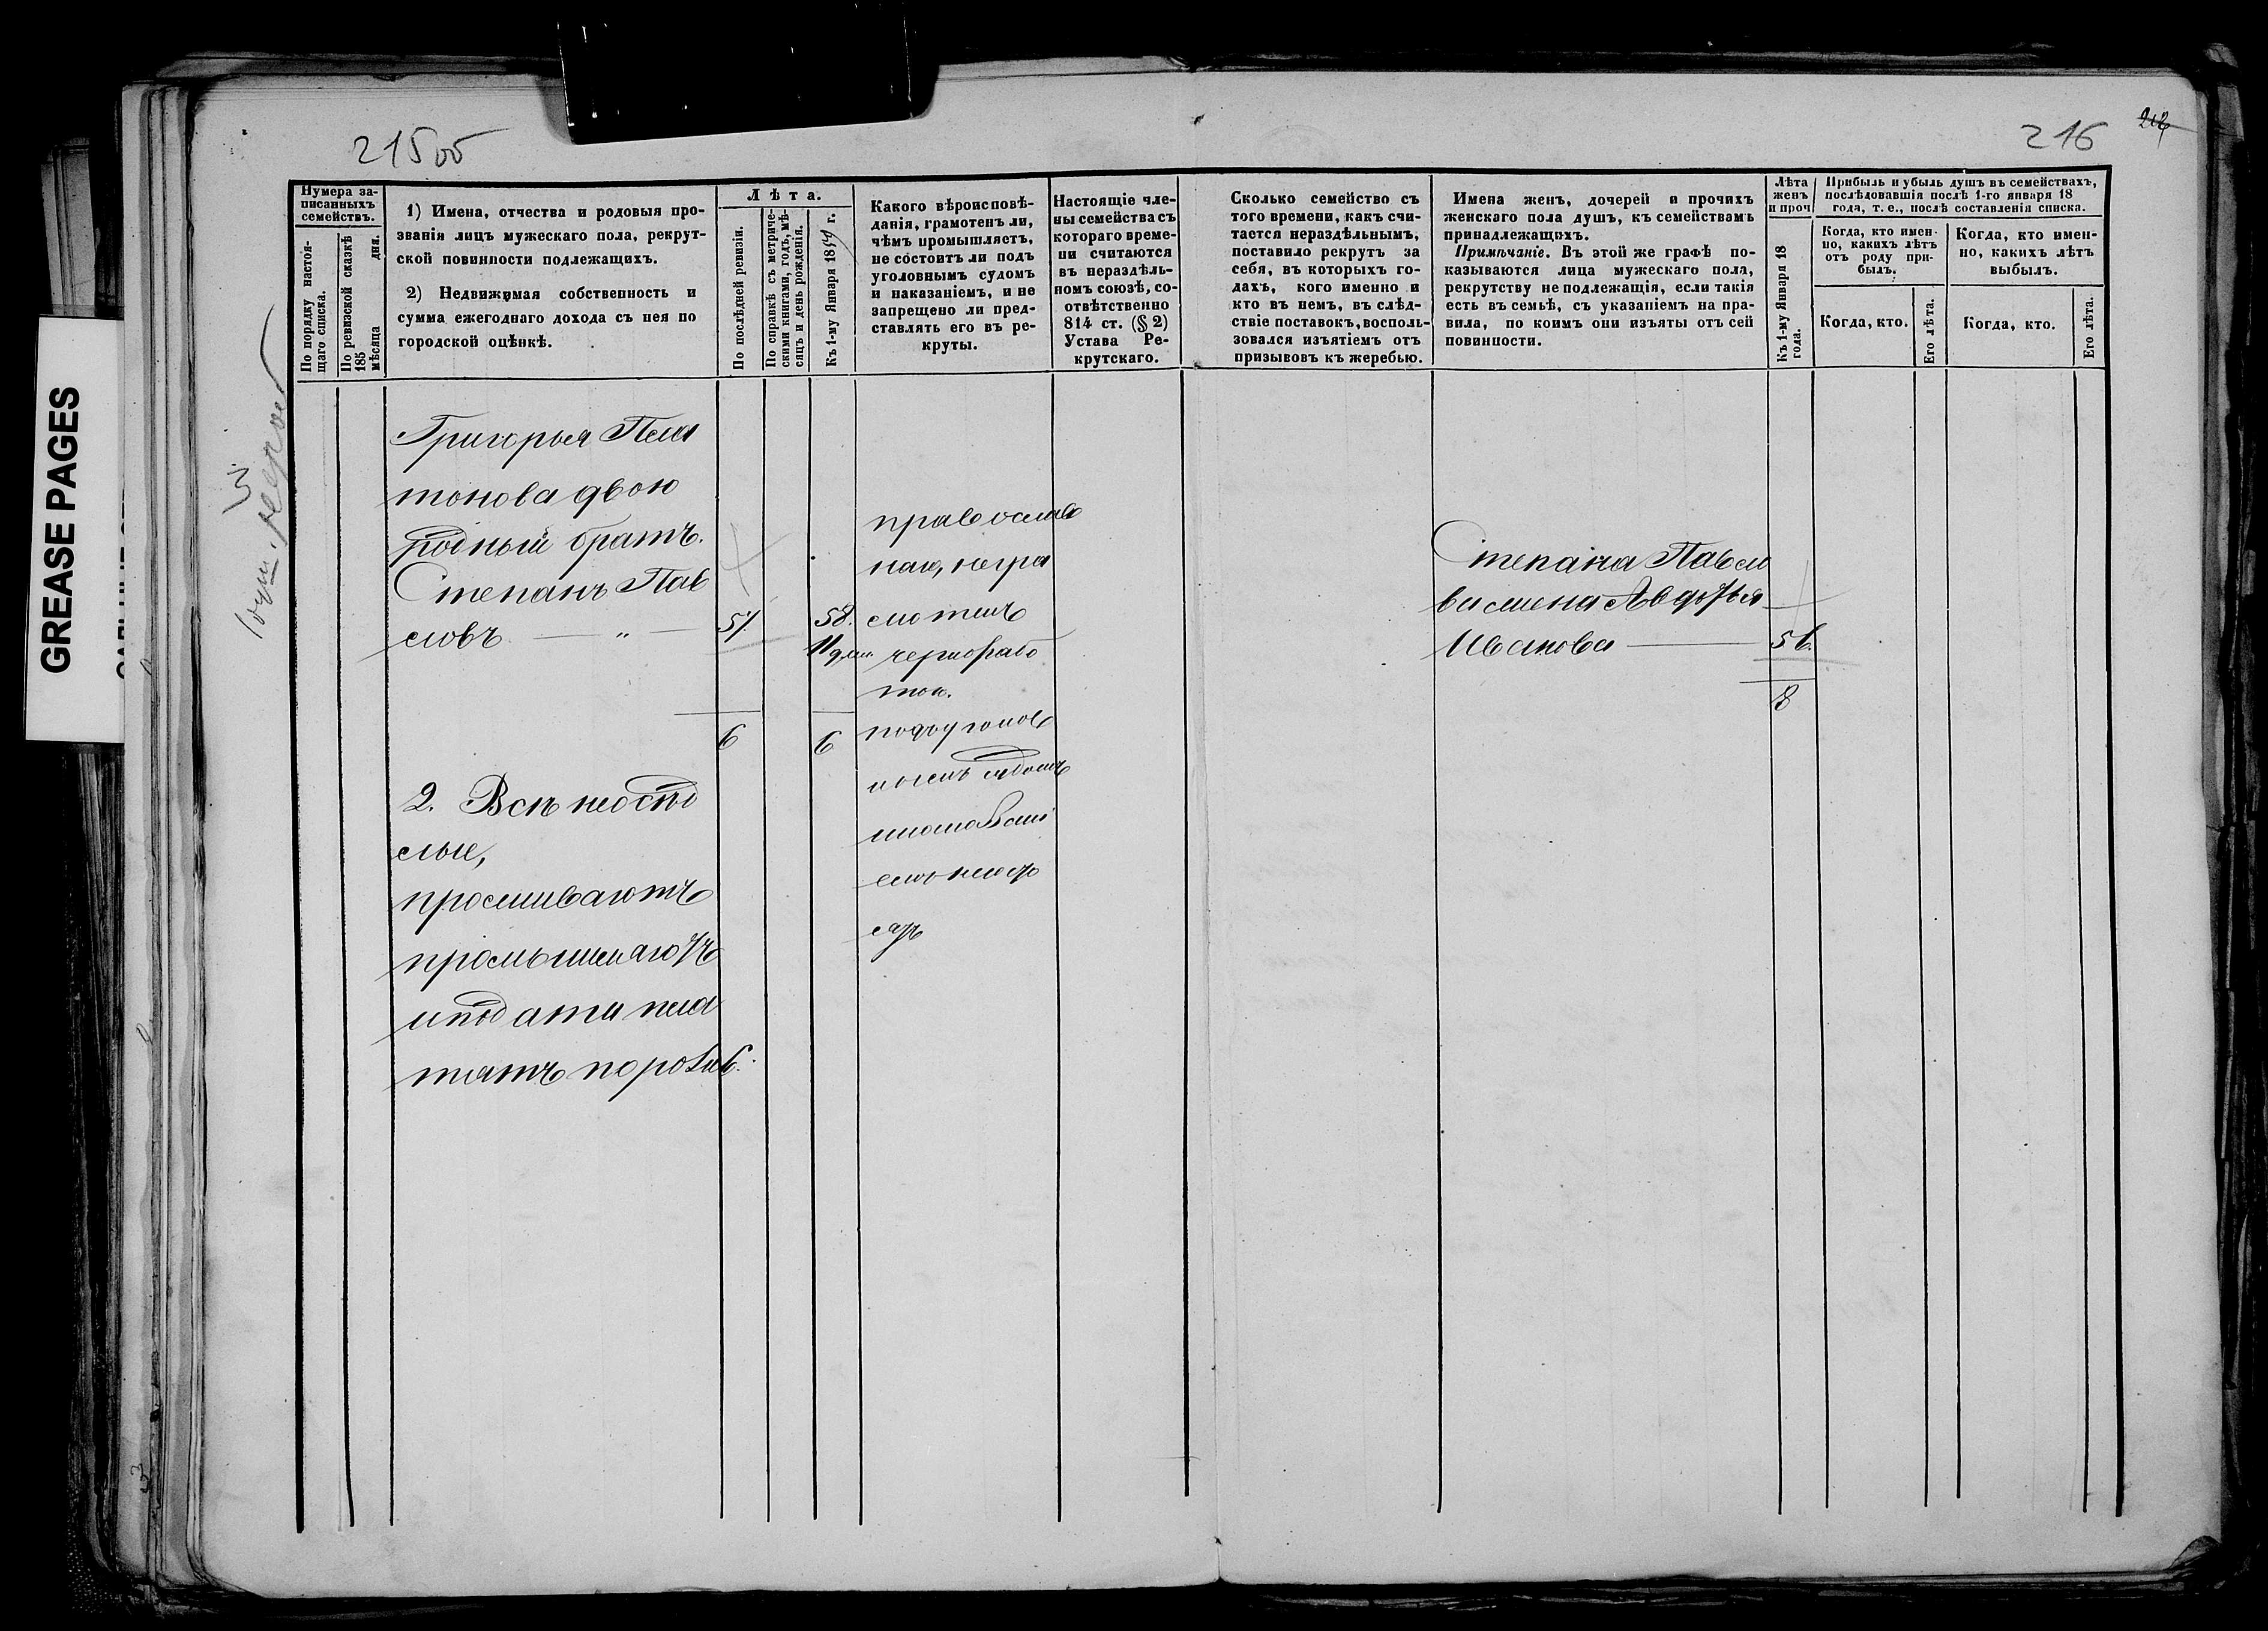 215об
216
Нумера за-
писанныхъ
семействъ.
По порядку настоя-
щаго списка.
По ревизской сказкѣ
185
мѣсяца дня.
1) Имена, отчества и родовыя про-
званія лицъ мужескаго пола, рекрут-
ской повинности подлежащихъ.
2) Недвижимая собственность и
сумма ежегоднаго дохода съ нея по
городской оцѣнкѣ.
Лѣта.
По послѣдней ревизіи.
По справкѣ съ метриче-
скими книгами, годъ, мѣ-
сяцъ и день рожденія.
Къ 1-му Января 1859 г.
Какого вѣроисповѣ-
данія, грамотенъ ли,
чѣмъ промышляетъ,
не состоитъ ли подъ
уголовнымъ судомъ
и наказаніемъ, и не
запрещено ли пред-
ставлять его въ ре-
круты.
Настоящіе чле-
ны семейства съ
котораго време-
ни считаются
въ нераздѣль-
номъ союзѣ, со-
отвѣтственно
814 ст. (§ 2)
Устава Ре-
крутскаго.
Сколько семейство съ
того времени, какъ счи-
тается нераздѣльнымъ,
поставило рекрутъ за
себя, въ которыхъ го-
дахъ, кого именно и
кто въ немъ, въ слѣд-
ствіе поставокъ, восполь-
зовался изъятіемъ отъ
призывовъ къ жеребью.
Имена женъ, дочерей и прочихъ
женскаго пола душъ, къ семействамъ
принадлежащихъ.
Примѣчаніе. Въ этой же графѣ по-
казываются лица мужескаго пола,
рекрутству неподлежащія, если такія
есть въ семьѣ, съ указаніемъ на пра-
вила, по коимъ они изъяты отъ сей
повинности.
Лѣта
женъ
и проч
Къ 1-му Января 18
года.
Прибыль и убыль душъ въ семействахъ,
послѣдовавшія послѣ 1-го января 18
года, т. е., послѣ составленія списка.
Когда, кто имен-
но, какихъ лѣтъ
отъ роду при-
былъ.
Когда, кто.
Его лѣта.
Когда, кто имен-
но, какихъ лѣтъ
выбылъ.
Когда, кто.
Его лѣта.
Григорья Пла
тонова двою
родный братъ.
Степанъ Пав
ловъ — „ — 57.
58.
6
6
2. Всѣ неосѣд
лые,
проживаютъ
промышляютъ
и подати пла
тятъ порознь.
православ
ная, негра
мотенъ
чернорабо
тою.
подъ уголов
нымъ судомъ
и наказані
емъ не
Степана Павло
ва жена Авдотья
Иванова — 56.
8
GREASE PAGES